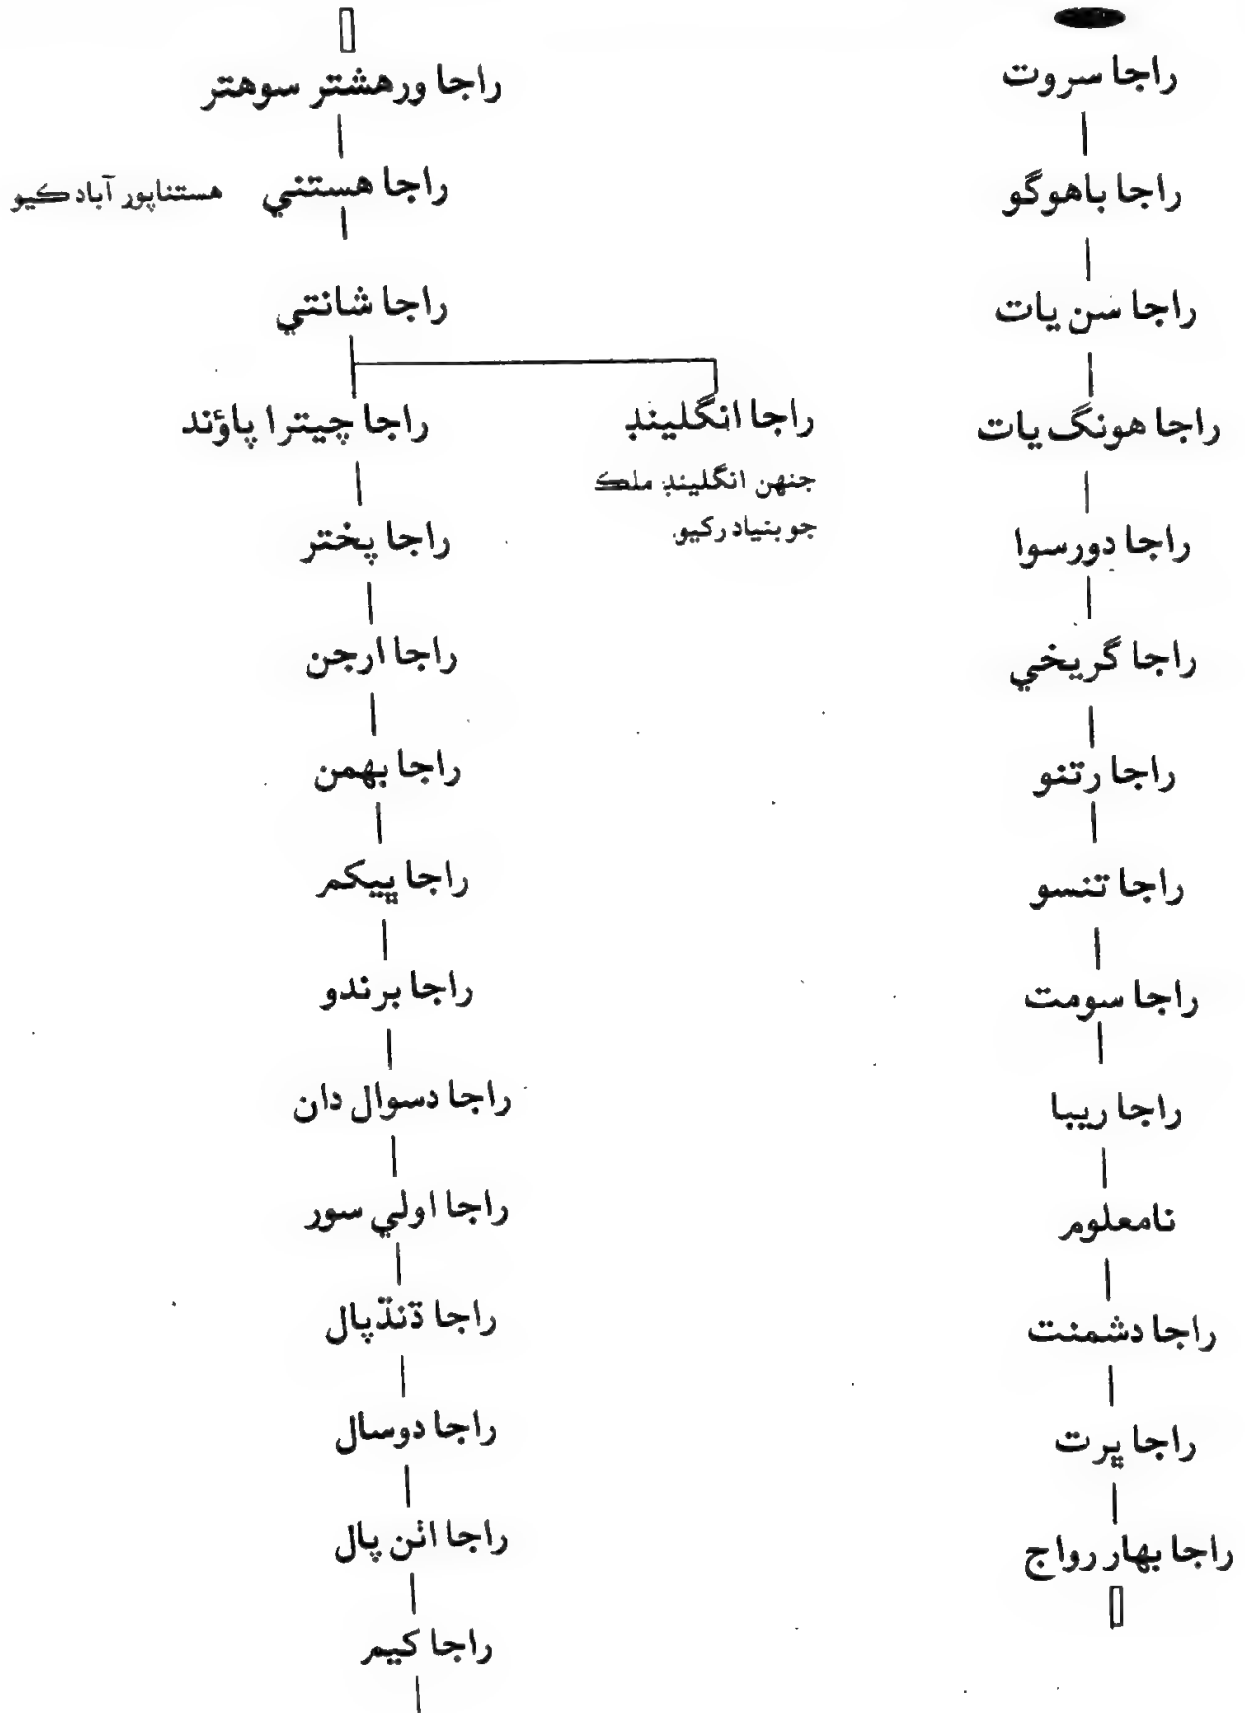 راجا سروت
راجا باهوگو
راجا سن يات
راجا هونگ يات
راجا دورسوا
راجا گريخي
راجا رتنو
راجا تنسو
راجا سومت
راجا ريبا
نامعلوم
راجا دشمنت
راجا ڀرت
راجا بهار رواج
راجا ورهشتر سوهتر
راجا هستني هستناپور آباد ڪيو
راجا شانتي
راجا انگلينڊ
جنهن انگلينڊ ملڪ
جو بنياد رکيو.
راجا چيترا پاؤند
راجا پختر
راجا ارجن
راجا بهمن
راجا ڀيکم
راجا برندو
راجا دسوال دان
راجا اولي سور
راجا ڌنڌپال
راجا دوسال
راجا اٺن پال
راجا کيم